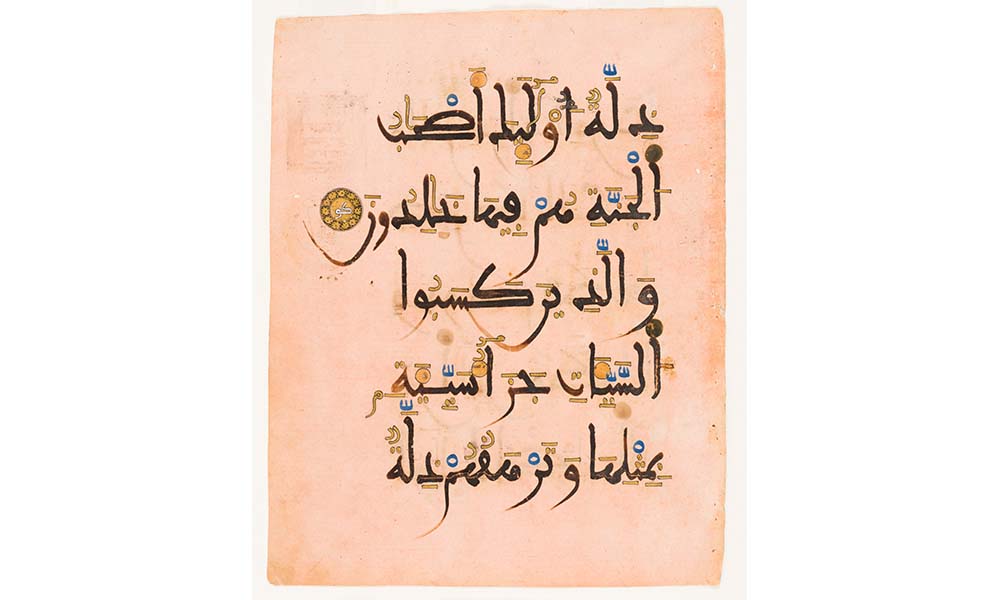 ذِلَّةٌ أُوْلَٰئِكَ أَصْحَٰبُ
اَلْجَنَّةِ هُمْ فِيهَا خَٰلِدُونَ كو
وَالَّذِينَ كَسَبُوا
اَلسَّيِّـَٔاتِ جَزَآءُ سَيِّئَةٍۭ
بِمِثْلِهَا وَتَرْهَقُهُمْ ذِلَّةٌ